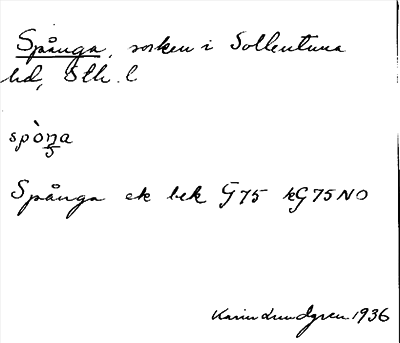 Spånga, socken i Sollentuna
hd, Sth. l
spòŋa
5
Spånga ek bek G75 kG75NO
Karin Lundgren 1936